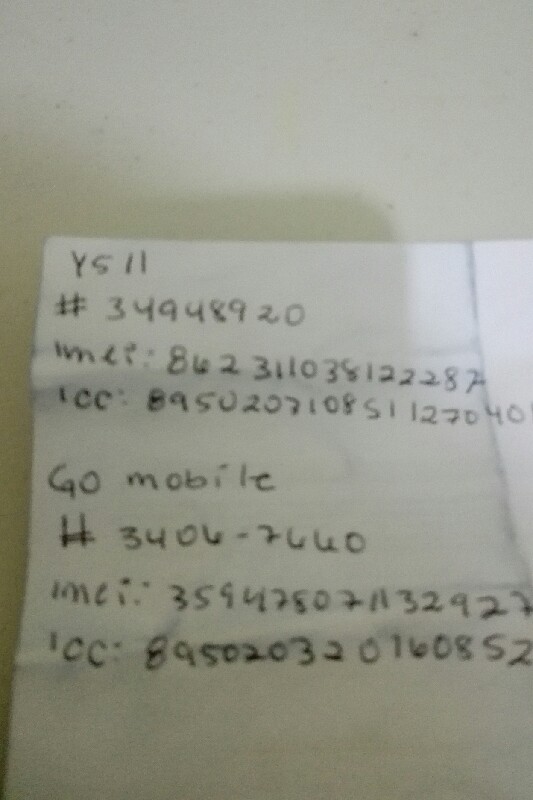 YS11
# 34948920
imei: 862311038122287
ICC: 895020710851127040
GO mobile
# 3406-7640
imei: 359478071132927
ICC: 895020320160852